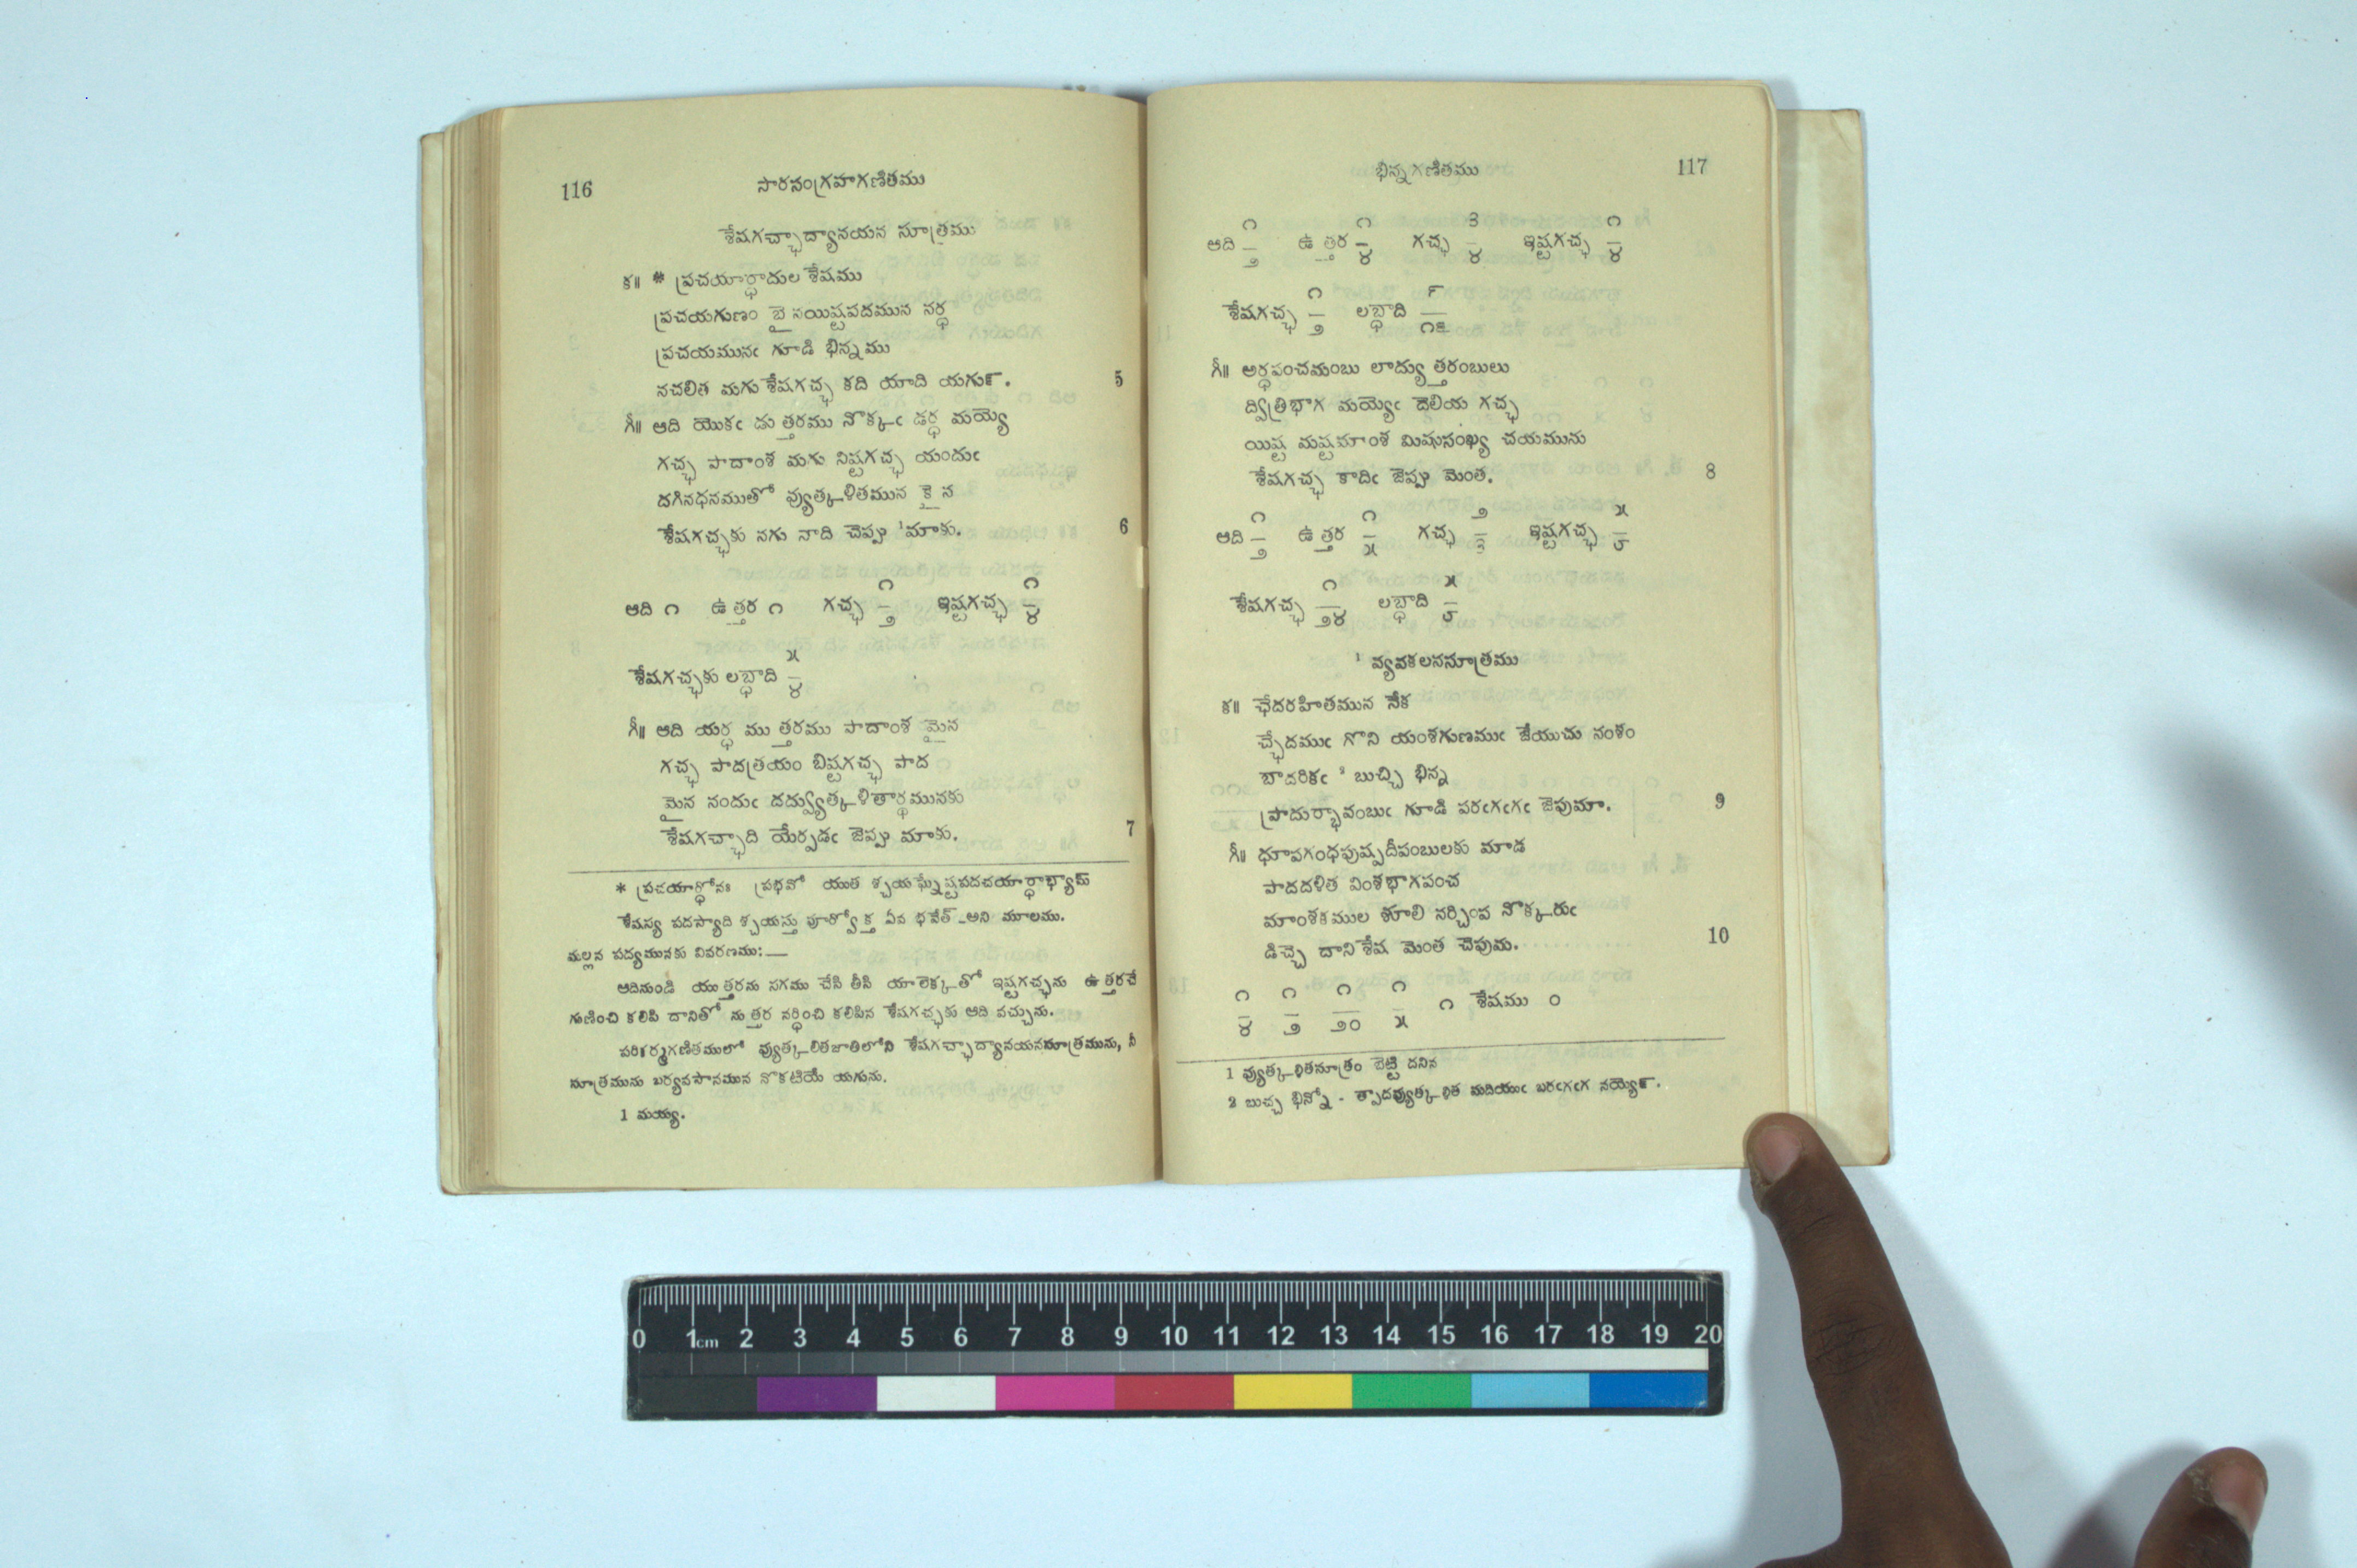 116
సారసంగ్రహగణితము
శేషగచ్ఛాద్యానయన సూత్రము
క॥ * ప్రచయార్ధాదుల శేషము
ప్రచయగుణం బై నయిష్టపదమున నర్ధ
ప్రచయమునఁ గూడి భిన్నము
నచలిత మగు శేషగచ్ఛ కది యాది యగున్. 5
గీ॥ ఆది యొకఁ డు త్తరము నొక్కఁ డర్ధ మయ్యె
గచ్ఛ పాదాంశ మగు నిష్టగచ్ఛ యందుఁ
దగినధనముతో వ్యుత్కళితమున కై న
శేషగచ్ఛకు నగు నాది చెప్పు ¹మాకు. 6
ఆది ౧ ఉ త్తర ౧ గచ్ఛ ౧/౨ ఇష్టగచ్ఛ ౧/౪
శేషగచ్ఛకు లబ్ధాది ౫/౪
గీ॥ ఆది యర్ధ ము త్తరము పాదాంశ మైన
గచ్ఛ పాదత్రయం బిష్టగచ్ఛ పాద
మైన నందుఁ దద్వ్యుత్కళితార్థమునకు
శేషగచ్ఛాది యేర్పడఁ జెప్పు మాకు. 7
* ప్రచయార్ధోనః ప్రభవో యుత శ్చయఘ్నేష్టపదచయార్ధాభ్యామ్
శేషస్య పదస్యాది శ్చయస్తు పూర్వోక్త ఏవ భవేత్ - అని మూలము.
మల్లన పద్యమునకు వివరణము:—
ఆదినుండి యుత్తరను సగము చేసి తీసి యాలెక్కతో ఇష్టగచ్ఛను ఉత్తరచే
గుణించి కలిపి దానితో నుత్తర నర్ధించి కలిపిన శేషగచ్ఛకు ఆది వచ్చును.
పరికర్మగణితములో వ్యుత్కలితజాతిలోని శేషగచ్ఛాద్యానయనసూత్రమును, నీ
సూత్రమును బర్యవసానమున నొకటియే యగును.
1 మయ్య.
భిన్నగణితము
117
ఆది ౧/౨ ఉ త్తర ౧/౪ గచ్ఛ ౩/౪ ఇష్టగచ్ఛ ౧/౪
శేషగచ్ఛ ౧/౨ లబ్ధాది ౯/౧౬
గీ॥ అర్ధపంచమంబు లాద్యు త్తరంబులు
ద్విత్రిభాగ మయ్యెఁ దెలియ గచ్ఛ
యిష్ట మష్టమాంశ మిషుసంఖ్య చయమును
శేషగచ్ఛ కాదిఁ జెప్పు మెంత. 8
ఆది ౧/౨ ఉ త్తర ౧/౫ గచ్ఛ ౨/౩ ఇష్టగచ్ఛ ౫/౮
శేషగచ్ఛ ౧/౨౪ లబ్ధాది ౫/౮
¹ వ్యవకలనసూత్రము
క॥ ఛేదరహితమున నేక
చ్ఛేదముఁ గొని యంశగుణముఁ జేయుచు నంశం
బాదరికఁ ² బుచ్చి భిన్న
ప్రాదుర్భావంబుఁ గూడి పరఁగఁగఁ జెపుమా. 9
గీ॥ ధూపగంధపుష్పదీపంబులకు మాడ
పాదదళిత వింశభాగపంచ
మాంశకముల శూలి నర్చింప నొక్కరుఁ
డిచ్చె దాని శేష మెంత చెపుమ. 10
౧/౪ ౧/౨ ౧/౨౦ ౧/౫ ౧ శేషము ౦
1 వ్యుత్కలితసూత్రం బెట్టి దనిన
2 బుచ్చ భిన్నో - త్పాదవ్యుత్కలిత మదియుఁ బరఁగఁగ నయ్యెన్.
0 1cm 2 3 4 5 6 7 8 9 10 11 12 13 14 15 16 17 18 19 20